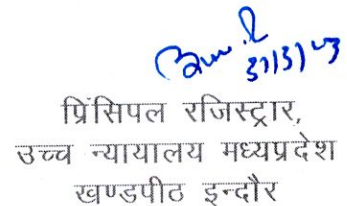 प्रिंसिपल रजिस्ट्रार,
उच्च न्यायालय मध्यप्रदेश
खण्डपीठ इन्दौर